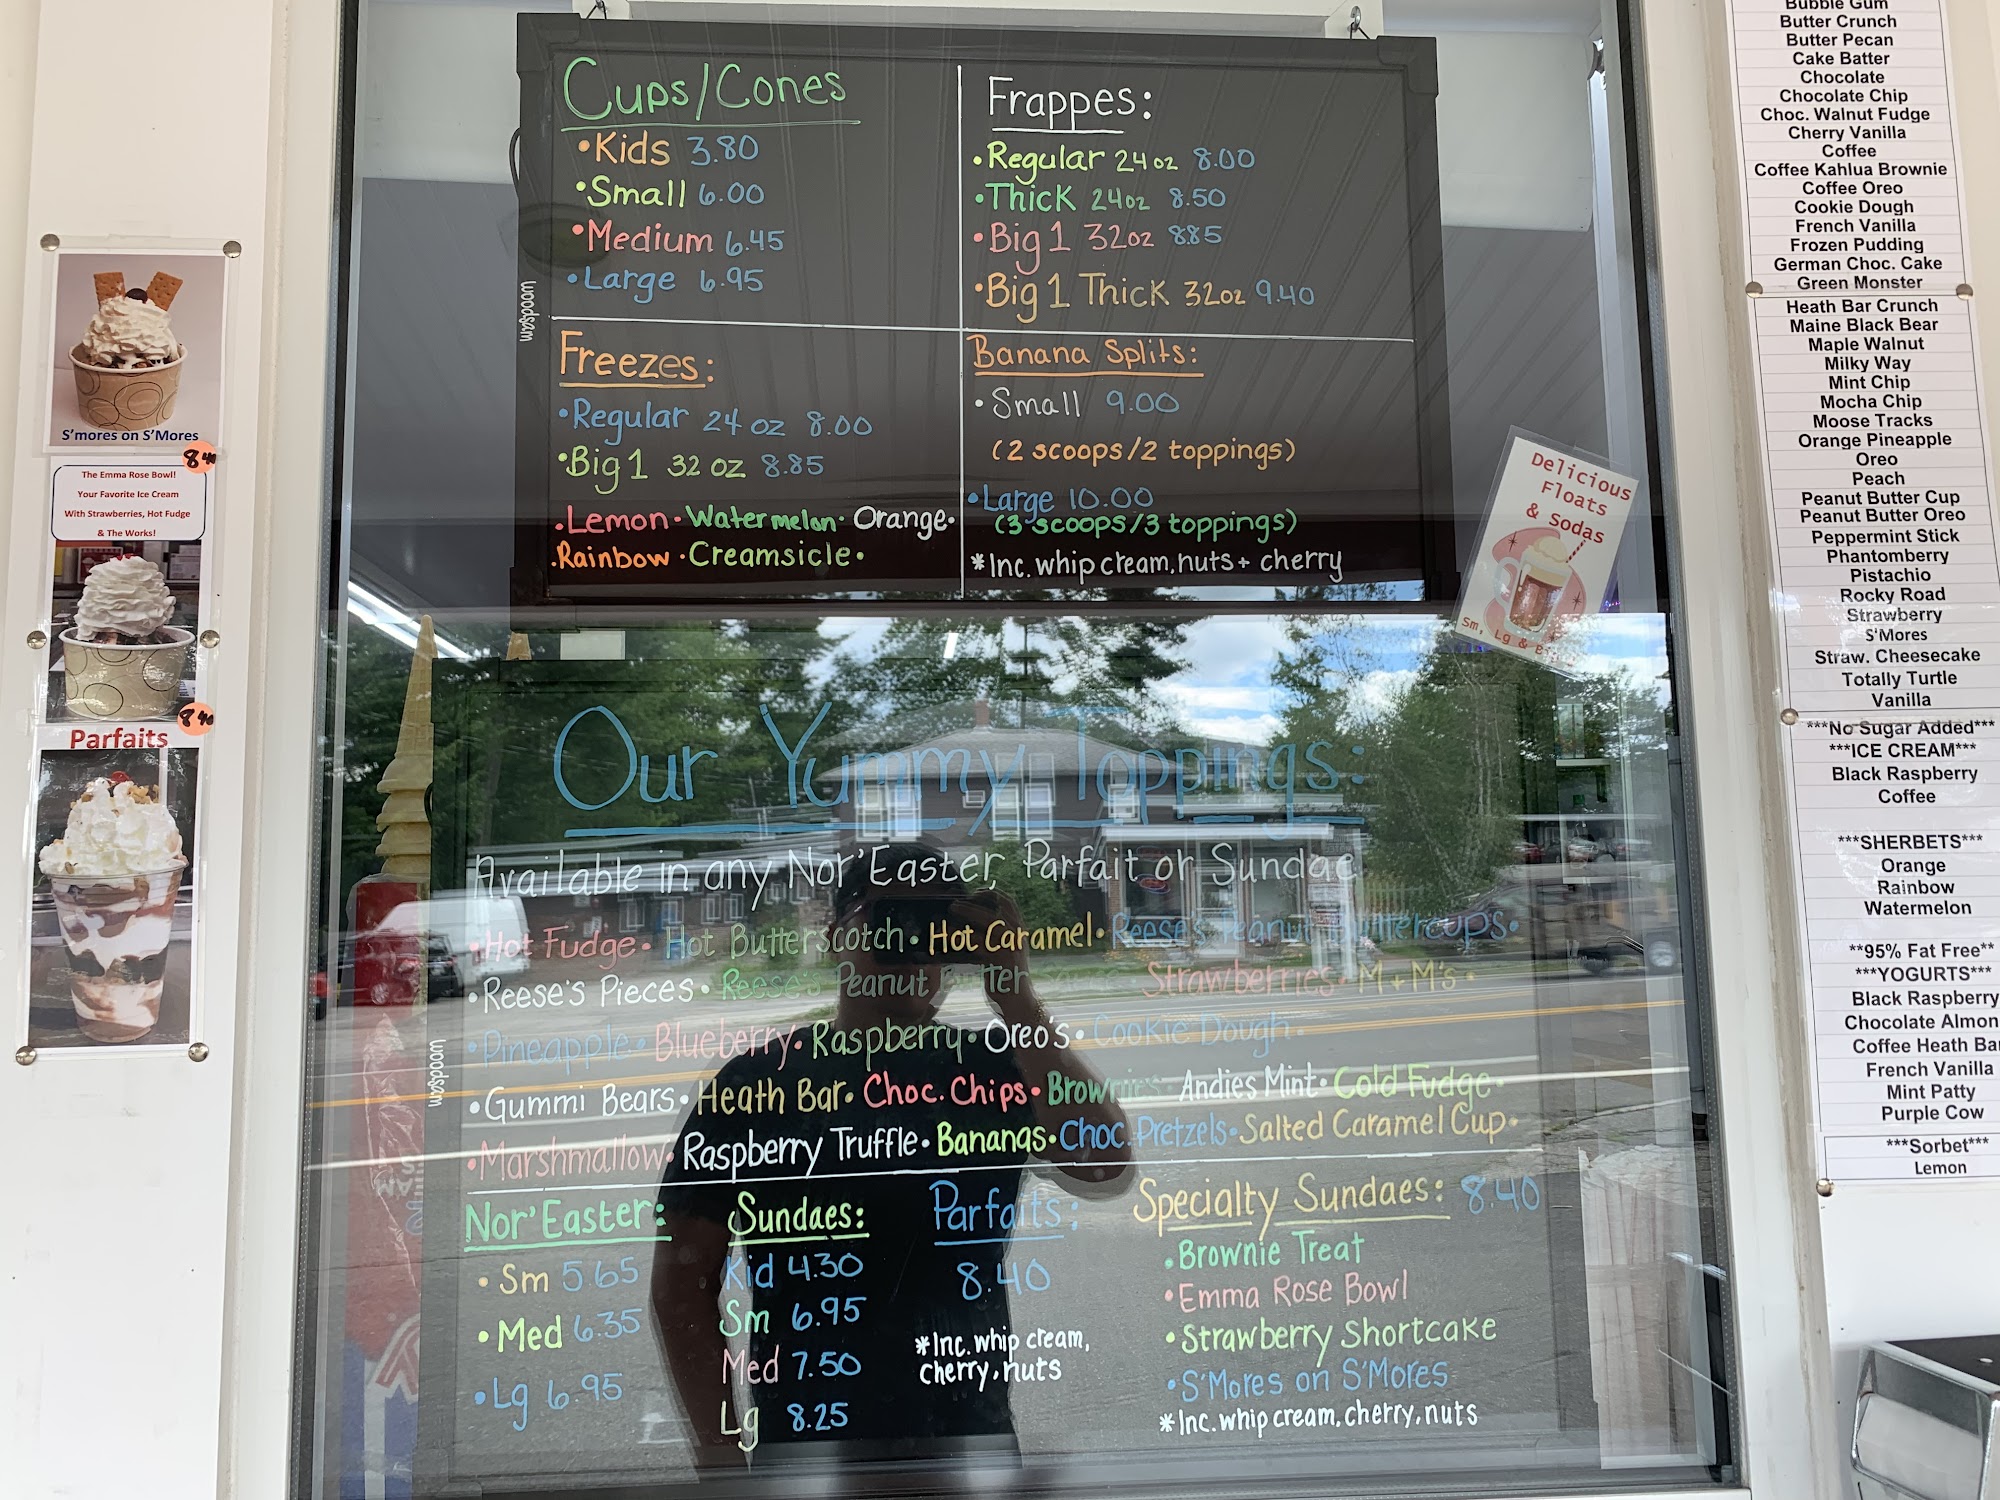 S'mores on S'Mores
8.40
The Emma Rose Bowl!
Your Favorite Ice Cream
With Strawberries, Hot Fudge
& The Works!
8.40
Parfaits
Cups/Cones
•Kids 3.80
•Small 6.00
•Medium 6.45
•Large 6.95
Frappes:
•Regular 24oz 8.00
•Thick 24oz 8.50
•Big 1 32oz 8.85
•Big 1 Thick 32oz 9.40
Freezes:
•Regular 24 oz 8.00
•Big 1 32 oz 8.85
•Lemon•Watermelon•Orange•
•Rainbow•Creamsicle•
Banana Splits:
•Small 9.00
(2 scoops/2 toppings)
•Large 10.00
(3 scoops/3 toppings)
*Inc. whip cream, nuts + cherry
woodsam
Delicious
Floats
& Sodas
Sm, Lg &
Our Yummy Toppings:
Available in any Nor'Easter, Parfait or Sundae
•Hot Fudge•Hot Butterscotch•Hot Caramel•Reese's Peanut Buttercups•
•Reese's Pieces•Reese's Peanut Butter Strawberries•M+M's•
•Pineapple•Blueberry•Raspberry•Oreo's•Cookie Dough•
•Gummi Bears•Heath Bar•Choc. Chips•Brownies•Andies Mint•Cold Fudge•
•Marshmallow•Raspberry Truffle•Bananas•Choc. Pretzels•Salted Caramel Cup•
woodsam
Nor'Easter:
•Sm 5.65
•Med 6.35
•Lg 6.95
Sundaes:
Kid 4.30
Sm 6.95
Med 7.50
Lg 8.25
Parfaits:
8.40
*Inc. whip cream,
cherry, nuts
Specialty Sundaes: 8.40
•Brownie Treat
•Emma Rose Bowl
•Strawberry Shortcake
•S'Mores on S'Mores
*Inc. whip cream, cherry, nuts
Bubble Gum
Butter Crunch
Butter Pecan
Cake Batter
Chocolate
Chocolate Chip
Choc. Walnut Fudge
Cherry Vanilla
Coffee
Coffee Kahlua Brownie
Coffee Oreo
Cookie Dough
French Vanilla
Frozen Pudding
German Choc. Cake
Green Monster
Heath Bar Crunch
Maine Black Bear
Maple Walnut
Milky Way
Mint Chip
Mocha Chip
Moose Tracks
Orange Pineapple
Oreo
Peach
Peanut Butter Cup
Peanut Butter Oreo
Peppermint Stick
Phantomberry
Pistachio
Rocky Road
Strawberry
S'Mores
Straw. Cheesecake
Totally Turtle
Vanilla
***No Sugar Added***
***ICE CREAM***
Black Raspberry
Coffee
***SHERBETS***
Orange
Rainbow
Watermelon
**95% Fat Free**
***YOGURTS***
Black Raspberry
Chocolate Almon
Coffee Heath Ba
French Vanilla
Mint Patty
Purple Cow
***Sorbet***
Lemon